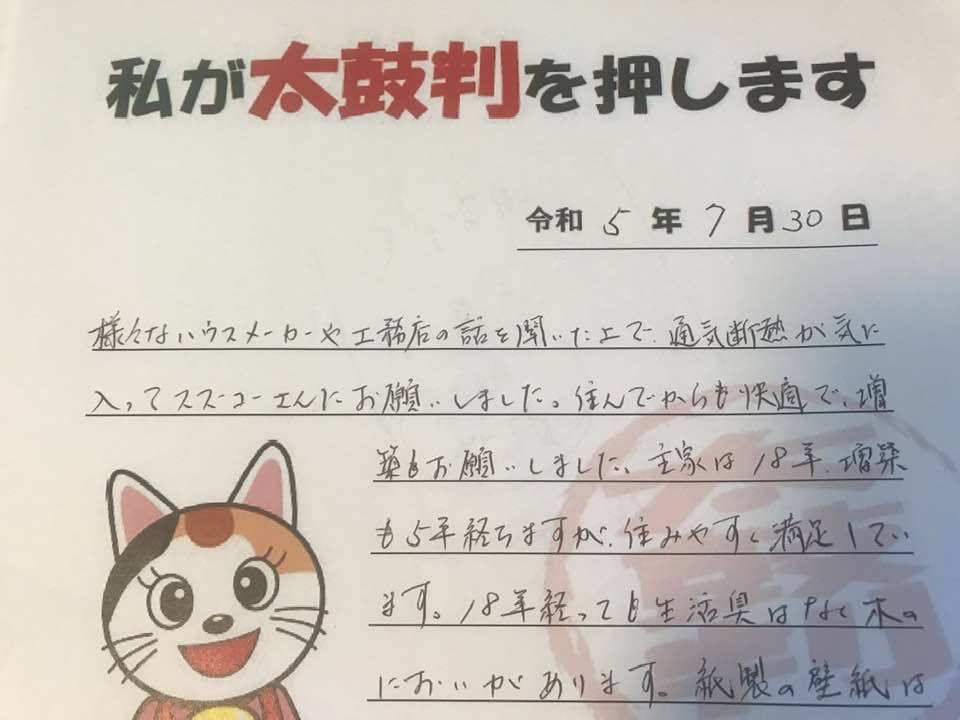 私が太鼓判を押します
令和 5 年 7 月 30 日
様々なハウスメーカーや工務店の話を聞いた上で、通気断熱が気に
入ってスズコーさんにお願いしました。住んでからも快適で、増
築もお願いしました。主家は18年、増築
も5年経ちますが、住みやすく満足してい
ます。18年経っても生活臭はなく木の
においがあります。紙製の壁紙は